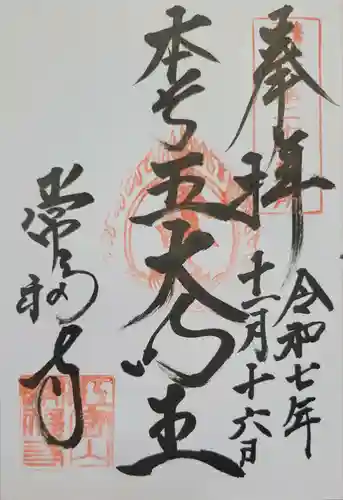 奉拝
令和七年
十一月十六日
本尊五大明王
常福寺